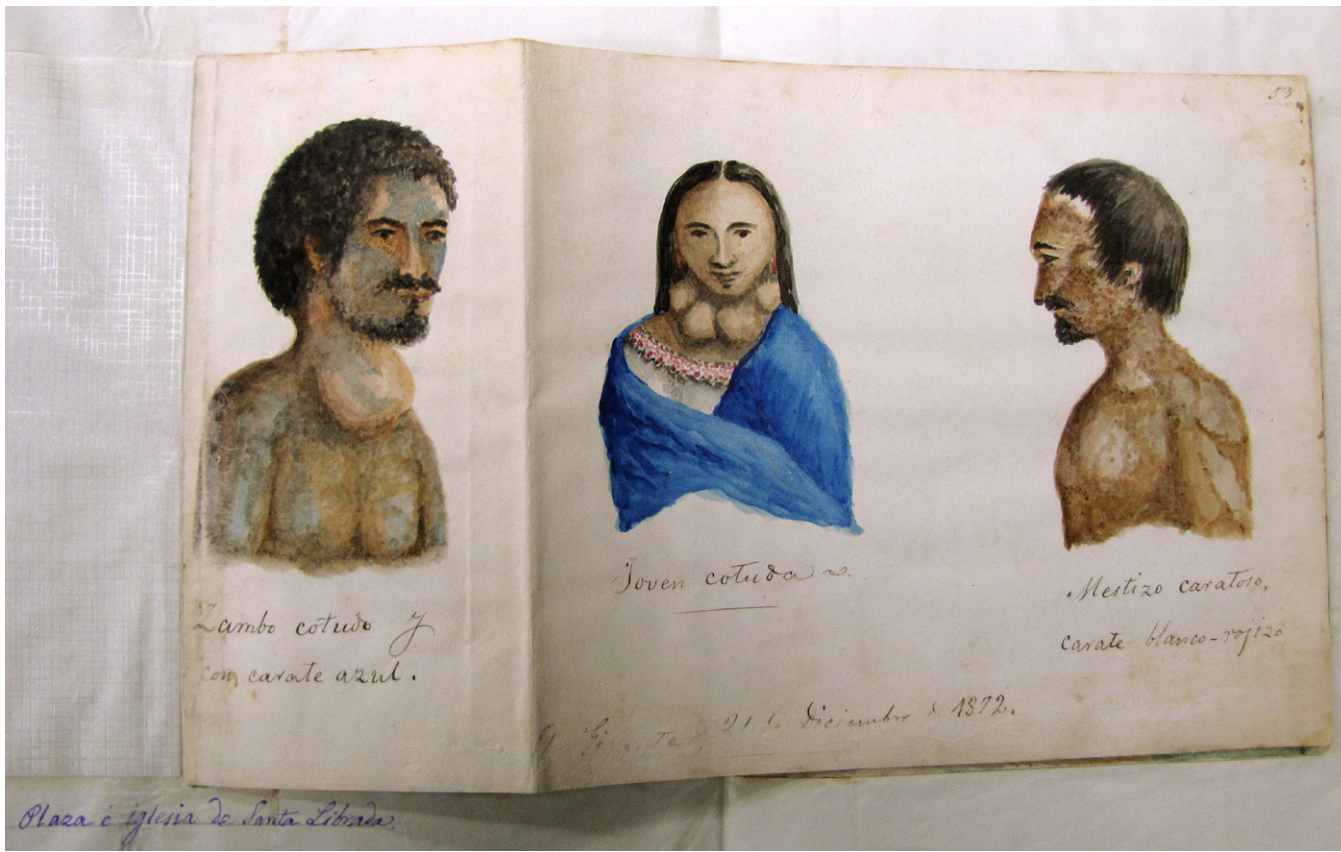 53
Zambo cotudo y
con carate azul.
Joven cotuda
Mestizo caratoso,
carate blanco-rojizo
El Gigante, 21 de Diciembre de 1872.
Plaza é iglesia de Santa Librada.